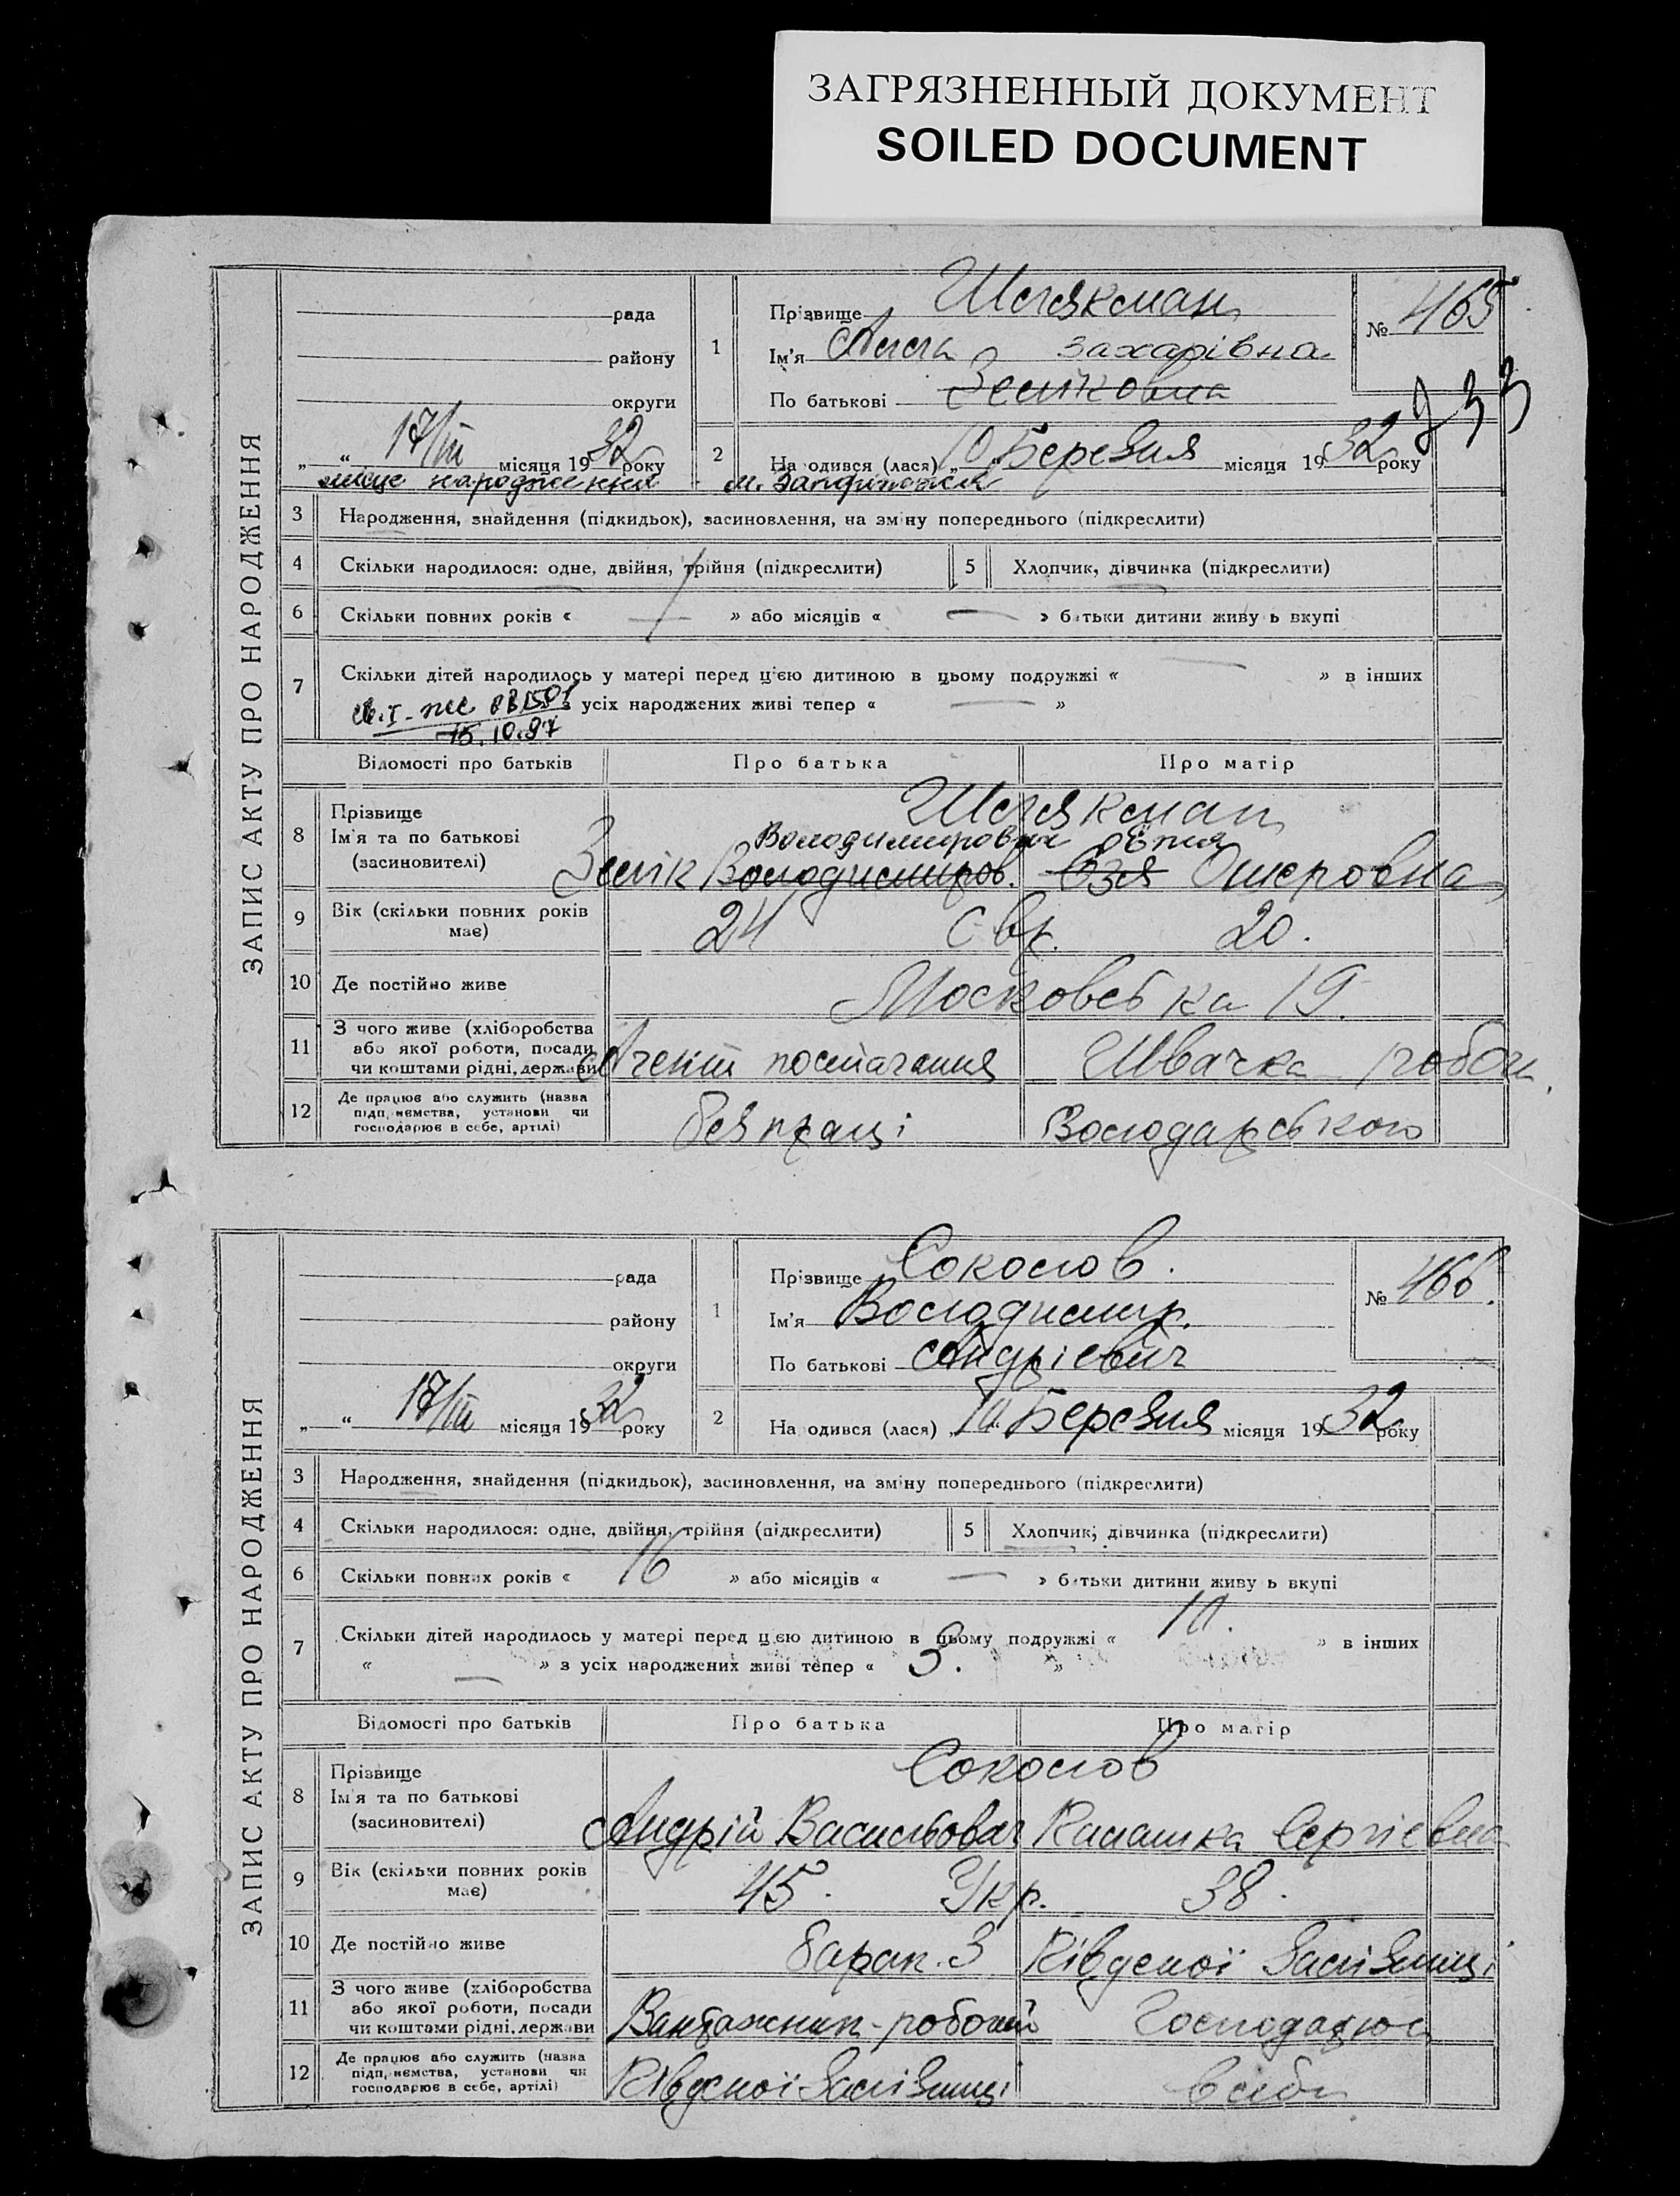 ЗАГРЯЗНЕННЫЙ ДОКУМЕНТ
SOILED DOCUMENT
ЗАПИС АКТУ ПРО НАРОДЖЕННЯ
рада
району
округи
„ “ 17/III місяця 1932 року
1
Прізвище Шлякман
Ім'я Алла Захарівна
По батькові Зейліковна
№ 465
933
2
На одився (лася) „10 Березня місяця 1932 року
місце народження м. Запоріжжя
3 Народження, знайдення (підкидьок), засиновлення, на зміну попереднього (підкреслити)
4 Скільки народилося: одне, двійня, трійня (підкреслити)
5 Хлопчик, дівчинка (підкреслити)
6 Скільки повних років « 1 » або місяців « — » батьки дитини живу ь вкупі
7 Скільки дітей народилось у матері перед цією дитиною в цьому подружжі « — » в інших
з усіх народжених живі тепер « — »
15.10.97
Відомості про батьків
Про батька
Про матір
8 Прізвище
Ім'я та по батькові
(засиновителі)
Шлякман
Володимирович
Володимиров. Озя Ошеровна
9 Вік (скільки повних років має)
24 Євр. 20.
10 Де постійно живе
Московська 19.
11 З чого живе (хліборобства або якої роботи, посади чи коштами рідні, держави)
Агент постачання
Швачка робоч.
12 Де працює або служить (назва підприємства, установи чи господарює в себе, артілі)
без праці
Володарського
ЗАПИС АКТУ ПРО НАРОДЖЕННЯ
рада
району
округи
„ “ 17/III місяця 1932 року
1
Прізвище Соколов.
Ім'я Володимир.
По батькові Андрієвич
№ 466.
2
На одився (лася) „10. Березня місяця 1932 року
3 Народження, знайдення (підкидьок), засиновлення, на зміну попереднього (підкреслити)
4 Скільки народилося: одне, двійня, трійня (підкреслити)
5 Хлопчик, дівчинка (підкреслити)
6 Скільки повних років « 16 » або місяців « — » батьки дитини живу ь вкупі
7 Скільки дітей народилось у матері перед цією дитиною в цьому подружжі « 10. » в інших
« — » з усіх народжених живі тепер « 3. »
Відомості про батьків
Про батька
Про матір
8 Прізвище
Ім'я та по батькові
(засиновителі)
Соколов
Андрій Васильович
Сергієвна
9 Вік (скільки повних років має)
45. Укр. 38.
10 Де постійно живе
барак. 3 Південої Залізниці
11 З чого живе (хліборобства або якої роботи, посади чи коштами рідні, держави
Вантажник-робочий
Господарює
12 Де працює або служить (назва підприємства, установи чи господарює в себе, артілі)
Південої Залізниці
в себе